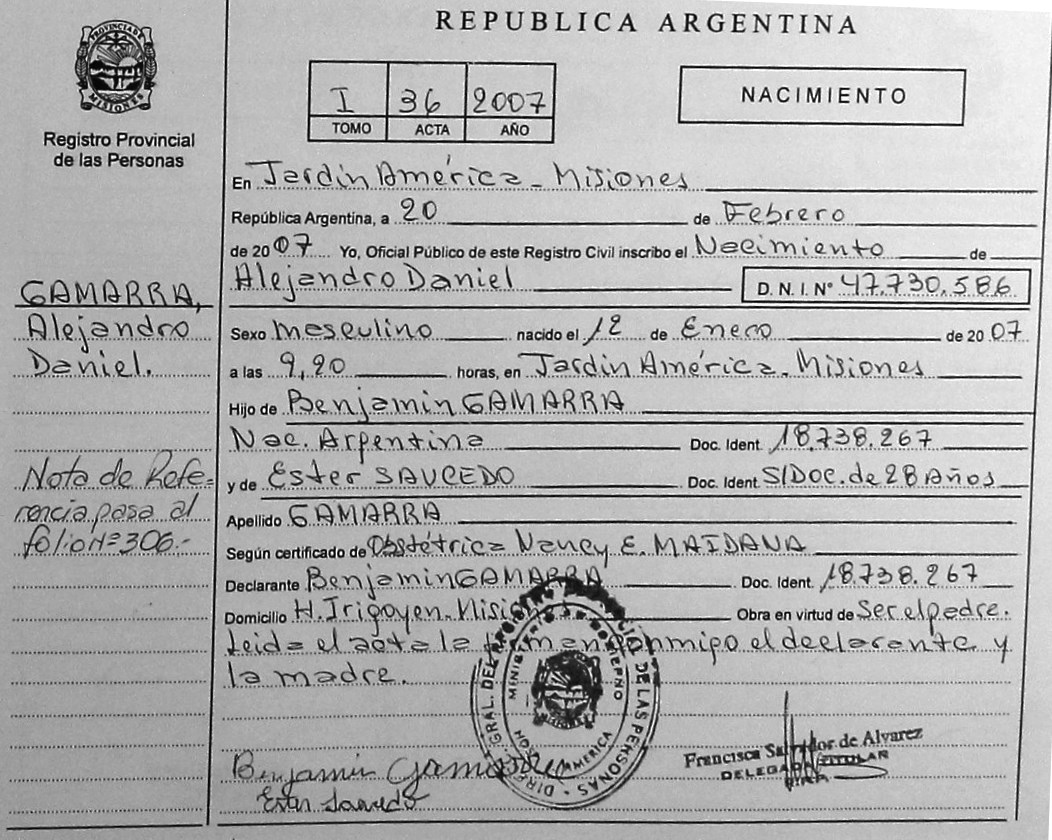 REPUBLICA ARGENTINA
PROVINCIA DE MISIONES
Registro Provincial
de las Personas
I 36 2007
TOMO ACTA AÑO
NACIMIENTO
En Jardín América - Misiones
República Argentina, a 20 de Febrero
de 2007 Yo, Oficial Público de este Registro Civil inscribo el Nacimiento de
Alejandro Daniel D.N.I. Nº 47.730.586
Sexo Masculino nacido el 12 de Enero de 2007
a las 9,20 horas, en Jardín América - Misiones
Hijo de Benjamin GAMARRA
Nac. Argentina Doc. Ident. 18.738.267
y de Ester SAUCEDO Doc. Ident. S/DOC. de 28 Años
Apellido GAMARRA
Según certificado de Obstétrica Nancy E. MAIDANA
Declarante Benjamin GAMARRA Doc. Ident. 18.738.267
Domicilio H. Irigoyen. Obra en virtud de Ser el padre.
Leída el acta la conmigo el declarante y
la madre.
GAMARRA,
Alejandro
Daniel.
Nota de Refe-
rencia pasa al
folio Nº 306.-
MINISTERIO DE GOBIERNO
DE LAS PERSONAS
AMERICA
Benjamin Gamarra
Ester Saucedo
Francisca de Alvarez
DELEGADA TITULAR